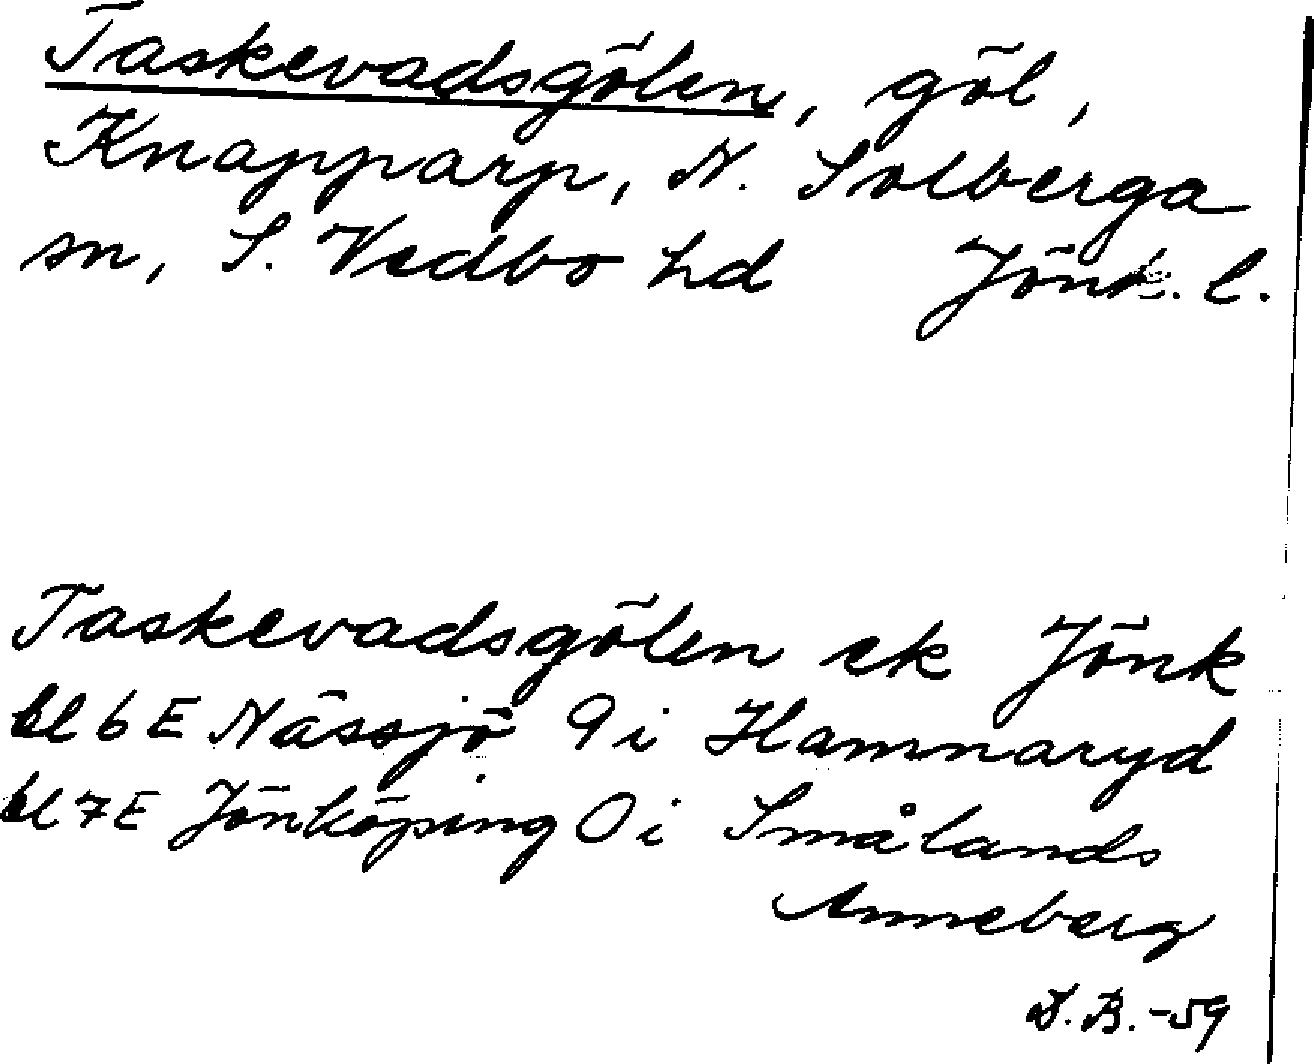 Taskevadsgölen, göl,
Knapparp, N. Solberga
sn, S. Vedbo hd Jönk. l.
Taskevadsgölen ek Jönk
bl 6 E Nässjö 9 i Hamnaryd
bl 7 E Jönköping 0 i Smålands
Anneberg
D.B. -59